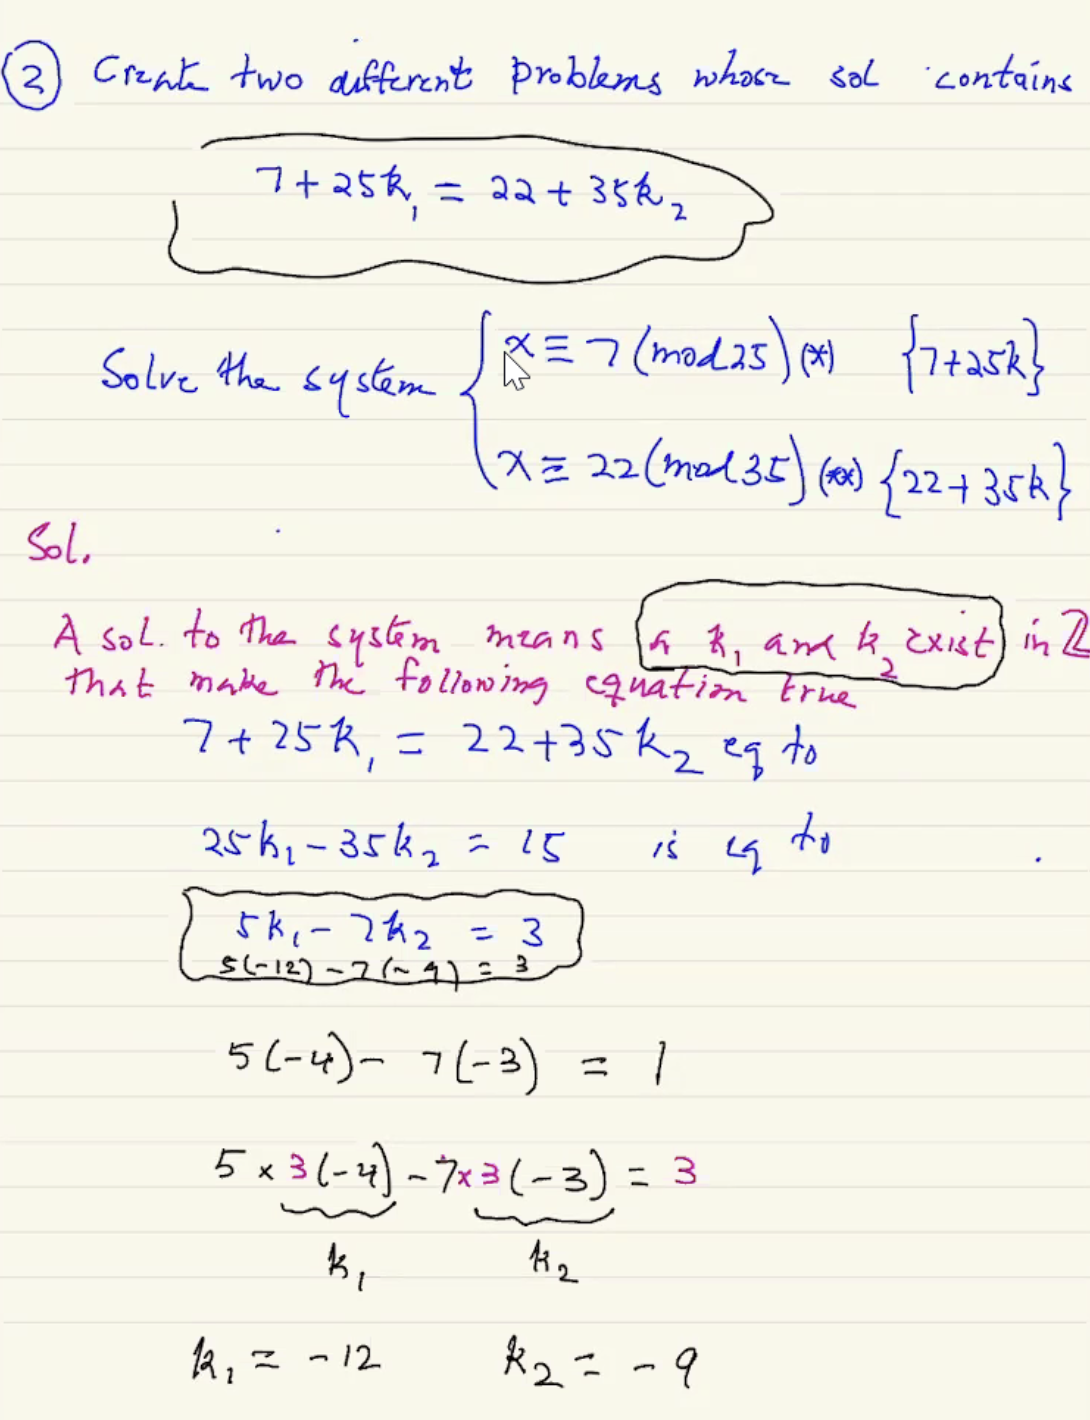 ② Create two different problems whose sol contains
7 + 25k₁ = 22 + 35k₂
Solve the system { x ≡ 7 (mod 25) (*) {7+25k}
x ≡ 22 (mod 35) (**) {22 + 35k}
Sol.
A sol. to the system means a k₁ and k₂ exist in ℤ
that make the following equation true
7 + 25k₁ = 22 + 35k₂ eq to
25k₁ - 35k₂ = 15 is eq to
5k₁ - 7k₂ = 3
5(-12) - 7(-9) = 3
5(-4) - 7(-3) = 1
5 × 3(-4) - 7 × 3(-3) = 3
k₁ k₂
k₁ = -12 k₂ = -9